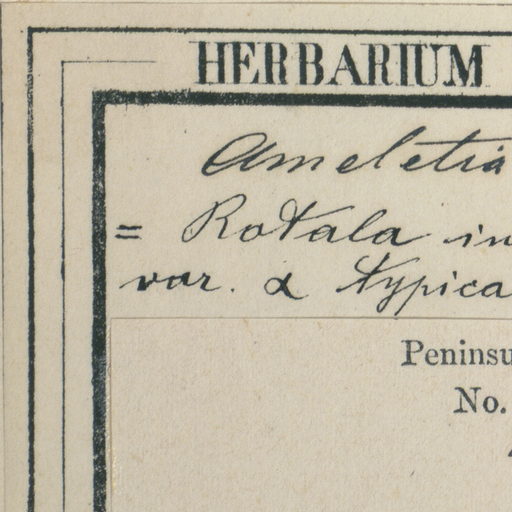 HERBARIUM
Ameletia
= Rotala in
var. α typica
Peninsu
No.